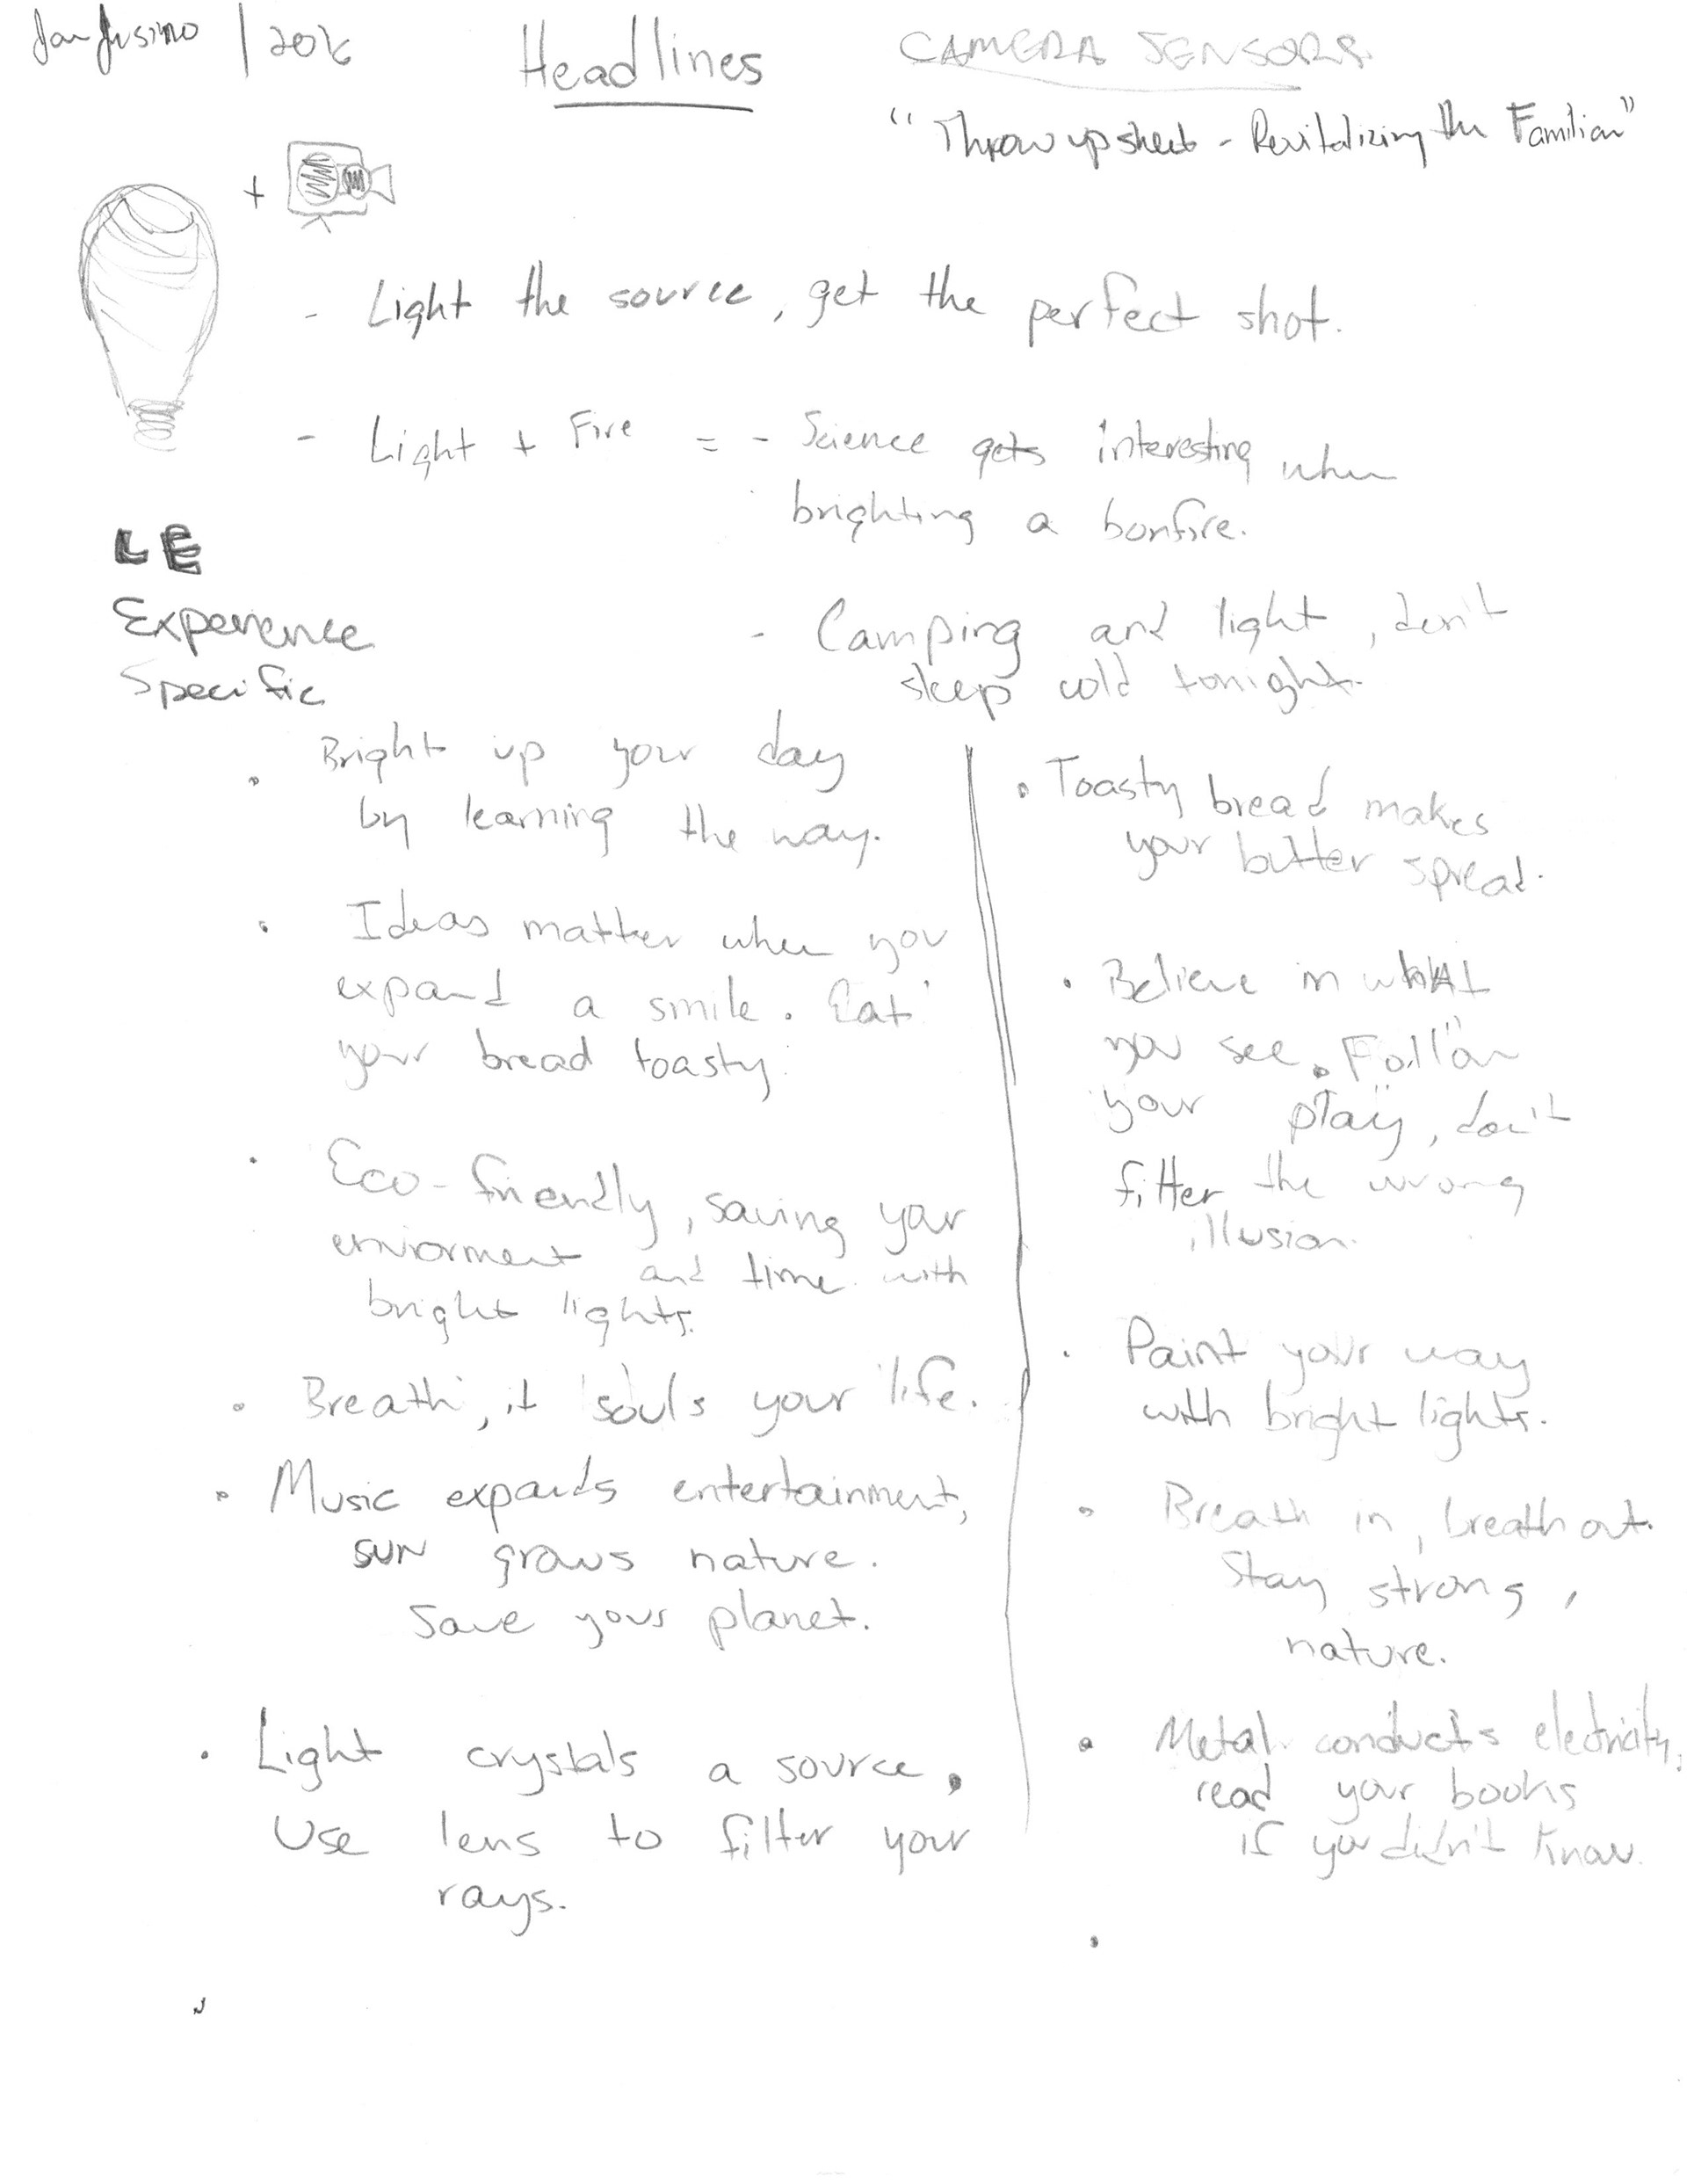 2016
Headlines
CAMERA SENSORS
"Throw up sheet - Revitalizing the Familiar"
+
- Light the source, get the perfect shot.
- Light + Fire = - Science gets interesting when
brighting a bonfire.
LE
Experience
Specific
- Camping and light, don't
sleep cold tonight.
• Bright up your day
by learning the way.
• Ideas matter when you
expand a smile. Eat
your bread toasty.
• Eco-friendly, saving your
enviorment and time with
bright lights.
• Breath, it souls your life.
• Music expands entertainment,
sun grows nature.
Save your planet.
• Light crystals a source.
Use lens to filter your
rays.
• Toasty bread makes
your butter spread.
• Believe in what
you see. Follow
your play, don't
fitter the wrong
illusion.
• Paint your way
with bright lights.
• Breath in, breath out.
Stay strong,
nature.
• Metal conducts electricity,
read your books
if you didn't know.